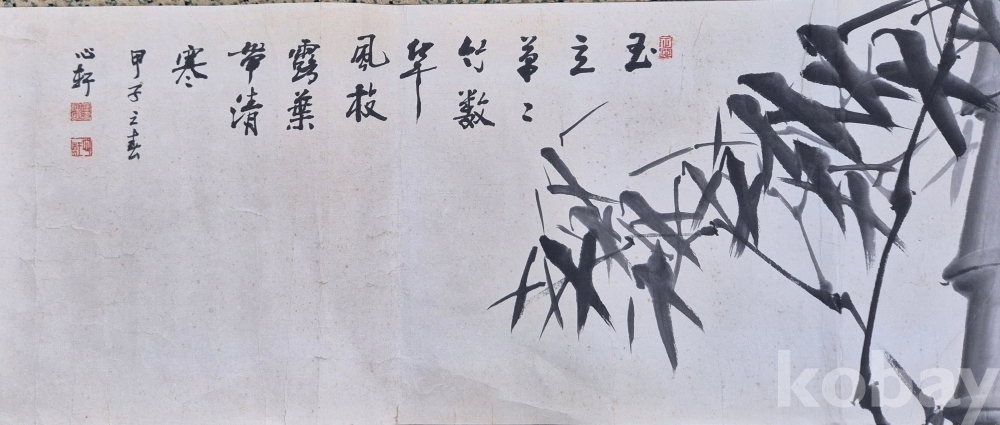 玉
立
蕭〻
竹数
竿
風枝
露葉
帶清
寒
甲子立春
心軒
kobay